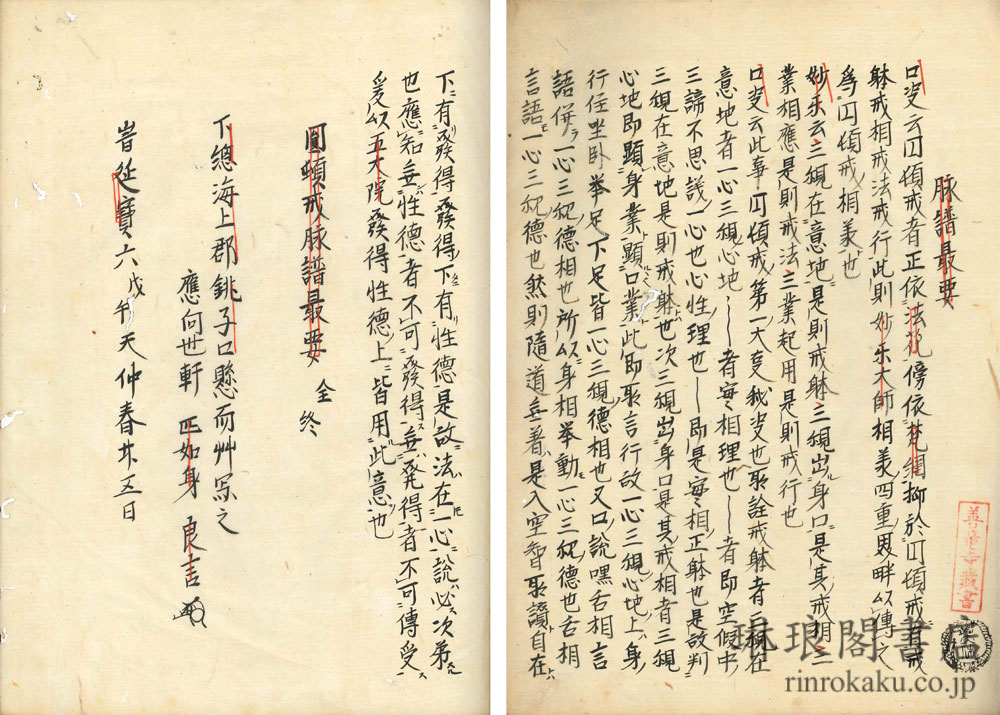 脉譜最要
口受云円頓戒者正依法花傍依梵網抑於円頓戒有戒
躰戒相戒法戒行此則妙乐大師相義四重畔以傳之
為円頓戒相義也
妙乐云三観在意地是則戒躰三観出身口是其戒相三
業相應是則戒法三業起用是則戒行也
口受云此事円頓戒第一大事秘受也所詮戒躰者三観在
意地者一心三観心地〡者実相理也〡者即空假中
三諦不思議一心也心性理也〡即是実相正躰也是故判
三観在意地是則戒躰也次三観出身口是其戒相者三観
心地即顕身業顕口業此即所言行故一心三観心地上身
行住坐卧举足下足皆一心三観德相也又口説嘿舌相言
語併一心三観德相也所以身相举動一心三観德也舌相
言語一心三観德也然則隨道無著是入空智所讃自在
善重寺蔵書
琳琅閣書店
rinrokaku.co.jp
下有發得發得下有性德是故法在一心說必次弟
也應知無性德者不可發得無発得者不可傳受
爰以五大院發得性德上皆用此意也
圓頓戒脉譜最要 全終
下總海上郡銚子口懸而艸写之
應向世軒 匹如身 良吉
旹延寶六戊午天仲春廿五日